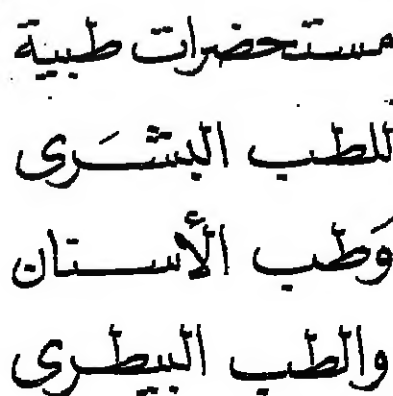 مستحضرات طبية
للطب البشَرى
وَطب الأسنان
والطب البيطرى